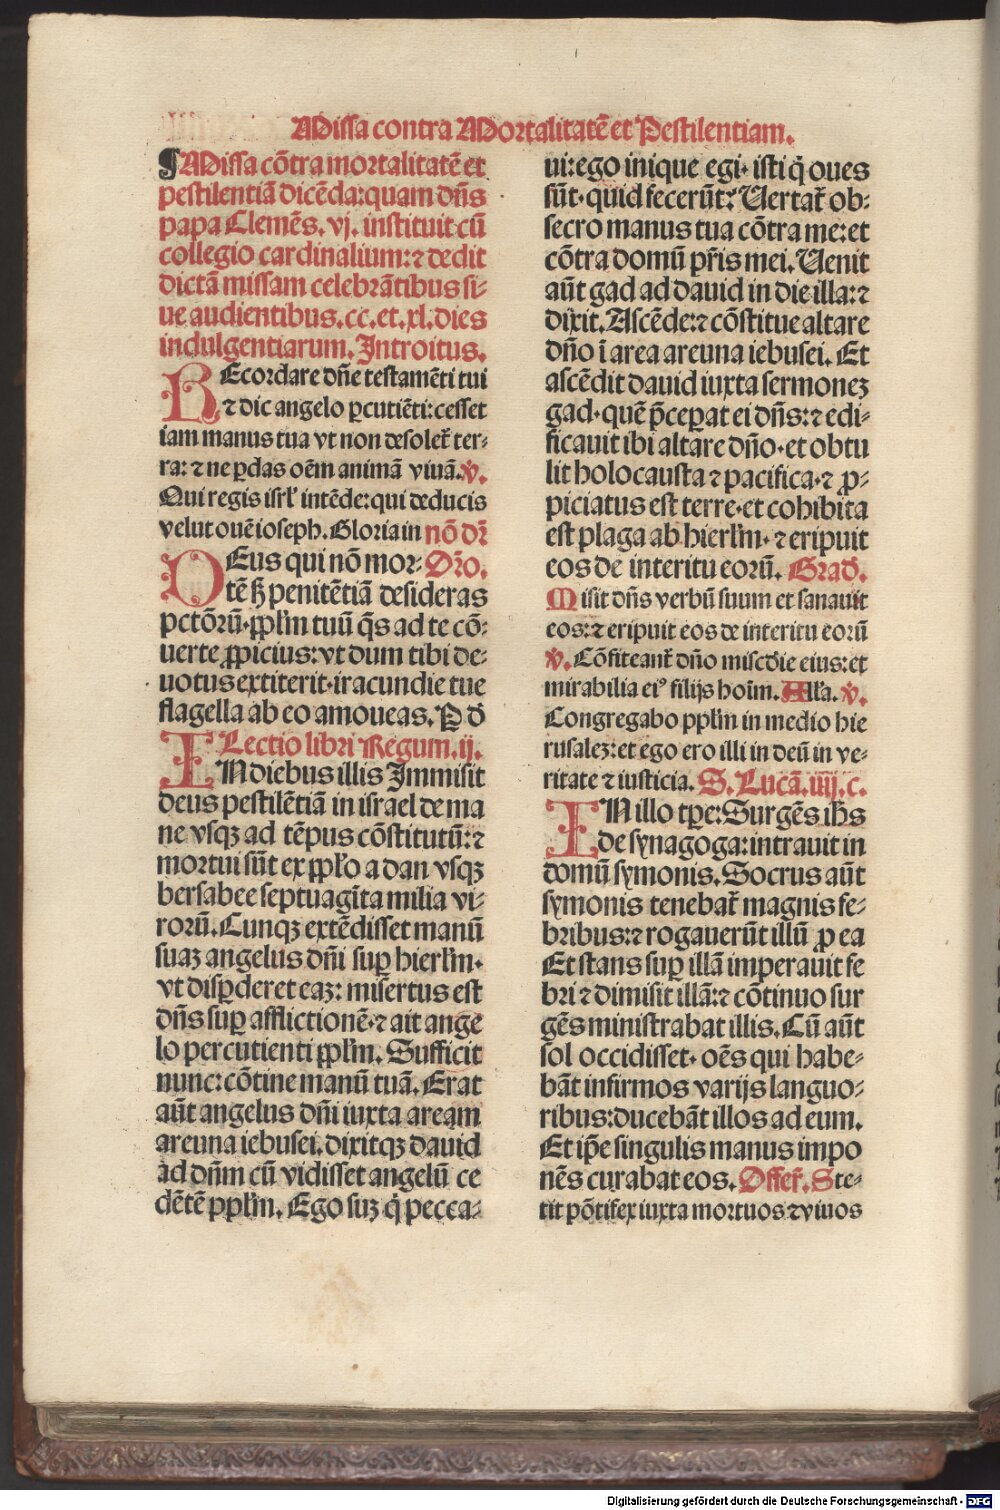 Missa contra Mortalitatē et Pestilentiam.
¶ Missa cōtra mortalitatē et
pestilentiā dicēda: quam dn̄s
papa Clemēs. vj. instituit cū
collegio cardinalium: ⁊ dedit
dictā missam celebrātibus si-
ue audientibus. cc. et. xl. dies
indulgentiarum. Introitus.
REcordare dn̄e testamēti tui
⁊ dic angelo ꝑcutiēti: cesset
iam manus tua vt non desoleť ter-
ra: ⁊ ne ꝑdas oēm animā viuā. ℣.
Qui regis isrl̓ intēde: qui deducis
velut ouē ioseph. Gloria in nō dr̄
DEus qui nō mor- Oro.
tē sꝫ penitētiā desideras
pctōrū· ppl̓m tuū q̄s ad te cō-
uerte ꝓpicius: vt dum tibi de-
uotus extiterit· iracundie tue
flagella ab eo amoueas. P d̄
Lectio libri Regum. ij.
IN diebus illis Immisit
deus pestilētiā in israel de ma
ne vsqꝫ ad tēpus cōstitutū: ⁊
mortui sūt ex ppl̓o a dan vsqꝫ
bersabee septuagīta milia vi-
rorū. Cunqꝫ extēdisset manū
suaꝫ angelus dn̄i suꝑ hierl̓m·
vt disꝑderet eaꝫ: misertus est
dn̄s suꝑ afflictionē· ⁊ ait ange
lo percutienti ppl̓m. Sufficit
nunc: cōtine manū tuā. Erat
aūt angelus dn̄i iuxta aream
areuna iebusei. dixitqꝫ dauid
ad dn̄m cū vidisset angelū ce
dētē ppl̓m. Ego suꝫ q̇ pecca-
ui: ego inique egi· isti q̇ oues
sūt· quid fecerūt? Uertať ob-
secro manus tua cōtra me: et
cōtra domū pr̄is mei. Uenit
aūt gad ad dauid in die illa: ⁊
dixit. Ascēde: ⁊ cōstitue altare
dn̄o ī area areuna iebusei. Et
ascēdit dauid iuxta sermoneꝫ
gad· quē p̄ceꝑat ei dn̄s: ⁊ edi-
ficauit ibi altare dn̄o· et obtu
lit holocausta ⁊ pacifica· ⁊ ꝓ-
piciatus est terre· et cohibita
est plaga ab hierl̓m· ⁊ eripuit
eos de interitu eorū. Grad̓.
Misit dn̄s verbū suum et sanauit
eos: ⁊ eripuit eos de interitu eorū
℣. Cōfiteanť dn̄o miscd̓ie eius: et
mirabilia eiꝰ filijs hoīm. All̓a. ℣.
Congregabo ppl̓m in medio hie
rusaleꝫ: et ego ero illi in deū in ve-
ritate ⁊ iusticia. S. Lucā. iiij. c.
IN illo tꝑe: Surgēs ih̄s
de synagoga: intrauit in
domū symonis. Socrus aūt
symonis tenebať magnis fe-
bribus: ⁊ rogauerūt illū ꝓ ea
Et stans suꝑ illā imperauit fe
bri ⁊ dimisit illā: ⁊ cōtinuo sur
gēs ministrabat illis. Cū aūt
sol occidisset· oēs qui habe-
bāt infirmos varijs languo-
ribus: ducebāt illos ad eum.
Et ip̄e singulis manus impo
nēs curabat eos. Offeř. Ste-
tit pōtifex iuxta mortuos ⁊ viuos
Digitalisierung gefördert durch die Deutsche Forschungsgemeinschaft - DFG